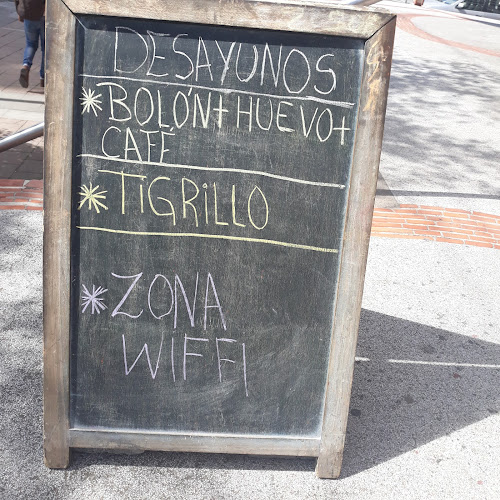 DESAYUNOS
* BOLÓN + HUEVO +
CAFÉ
* TIGRILLO
* ZONA
WIFFI